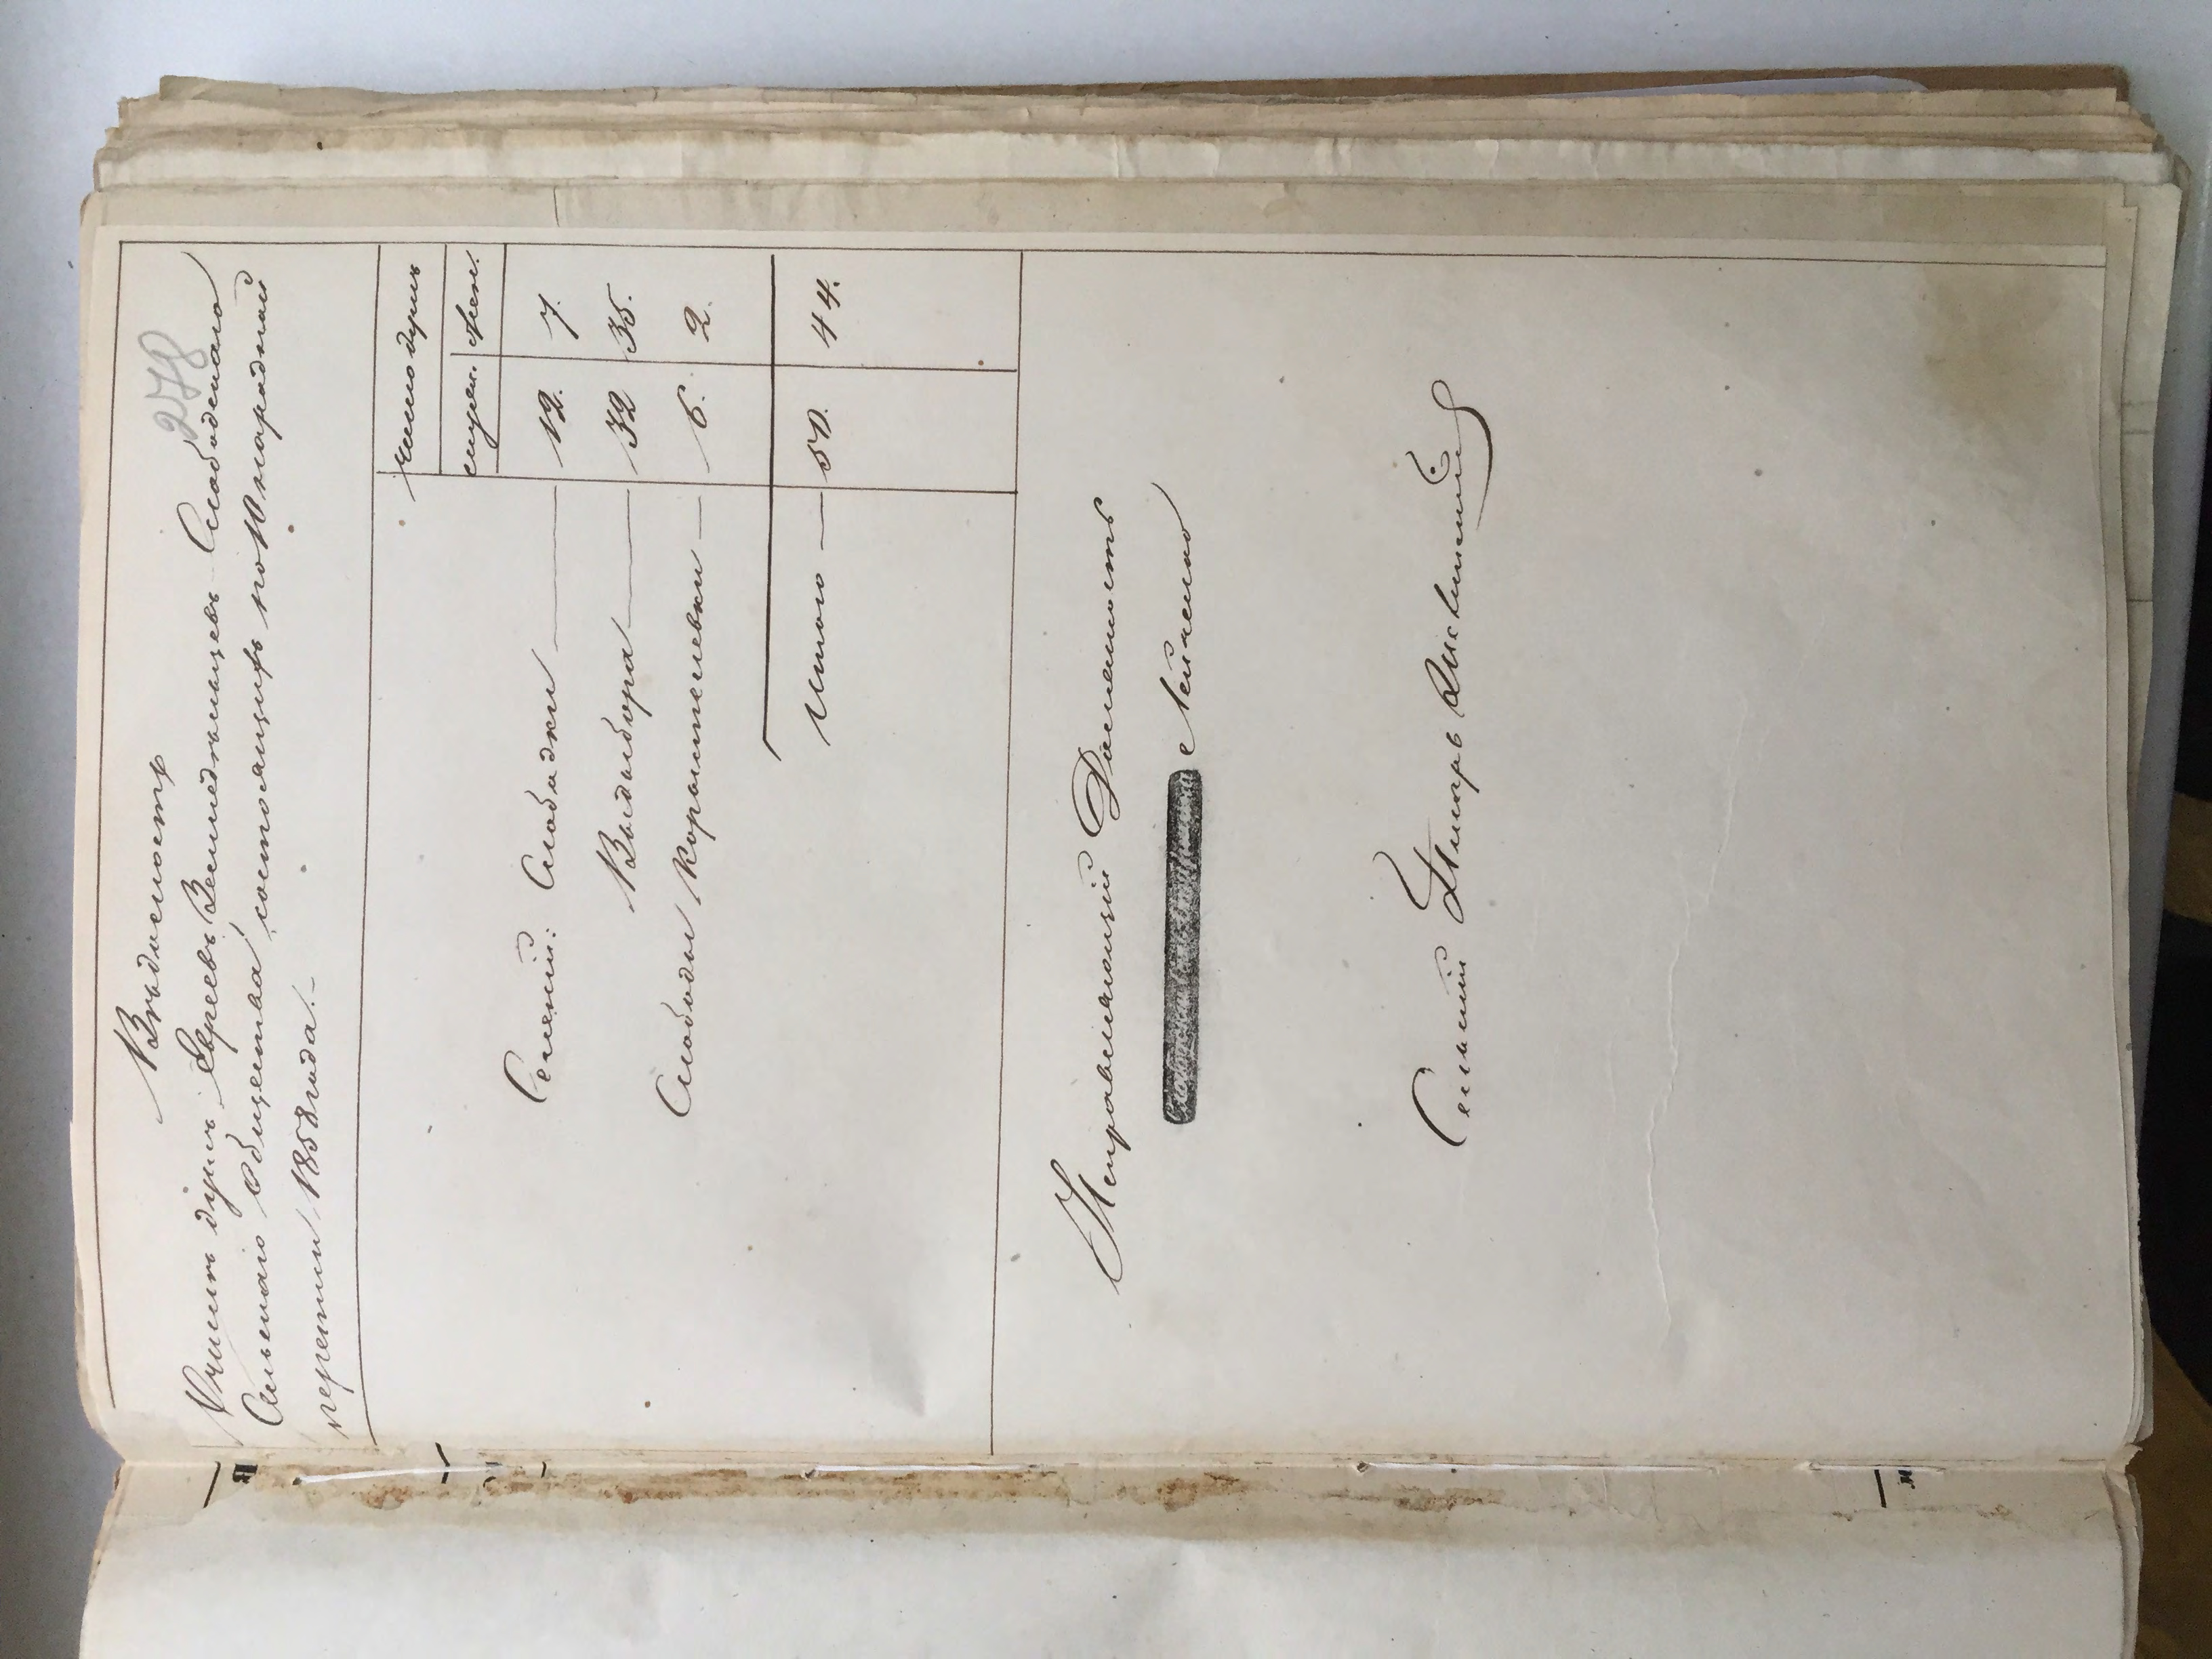 278
Вѣдомость
О числѣ душъ Евреевъ Земледѣльцевъ Слободскаго
Сельскаго Общества, состоящихъ по 10 народной
переписи 1858 года.
число душъ
мужс. женс.
Селеній: Слободки — 12. 7.
Выдыбора — 32 35.
Слободы Коростелевки — 6. 2.
Итого — 50. 44.
Исправляющій Должность
Сельскій Писарь